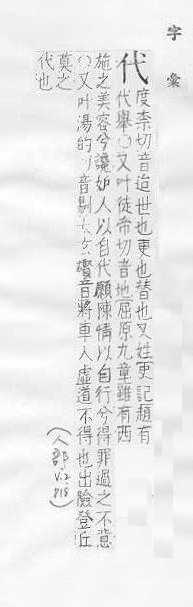 字彙
代 度柰切音迨世也更也替也又姓史記趙有
代舉○又叶徒帝切音地屈原九章雖有西
施之美容兮讒妒入以自代願陳情以白行兮得罪過之不意
○又叶湯的切音剔太玄 音將車人虛道不得也出險登丘
莫之
代也
(人部 V.2 818)